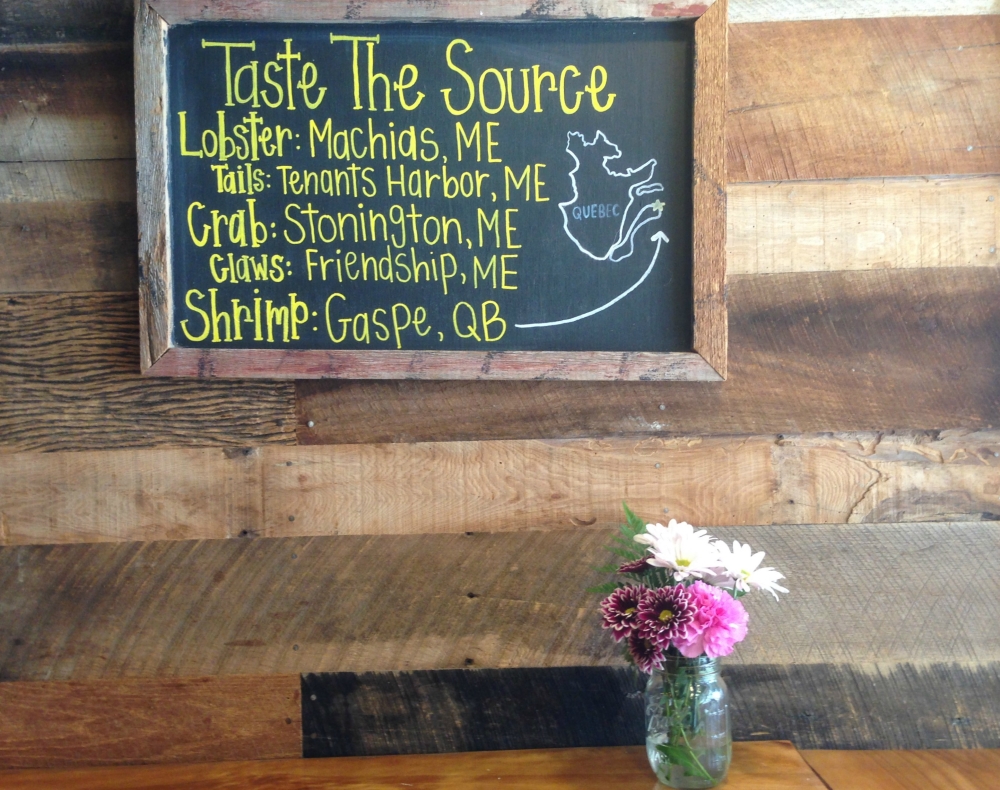 Taste The Source
Lobster: Machias, ME
Tails: Tenants Harbor, ME
Crab: Stonington, ME
Claws: Friendship, ME
Shrimp: Gaspe, QB
QUEBEC